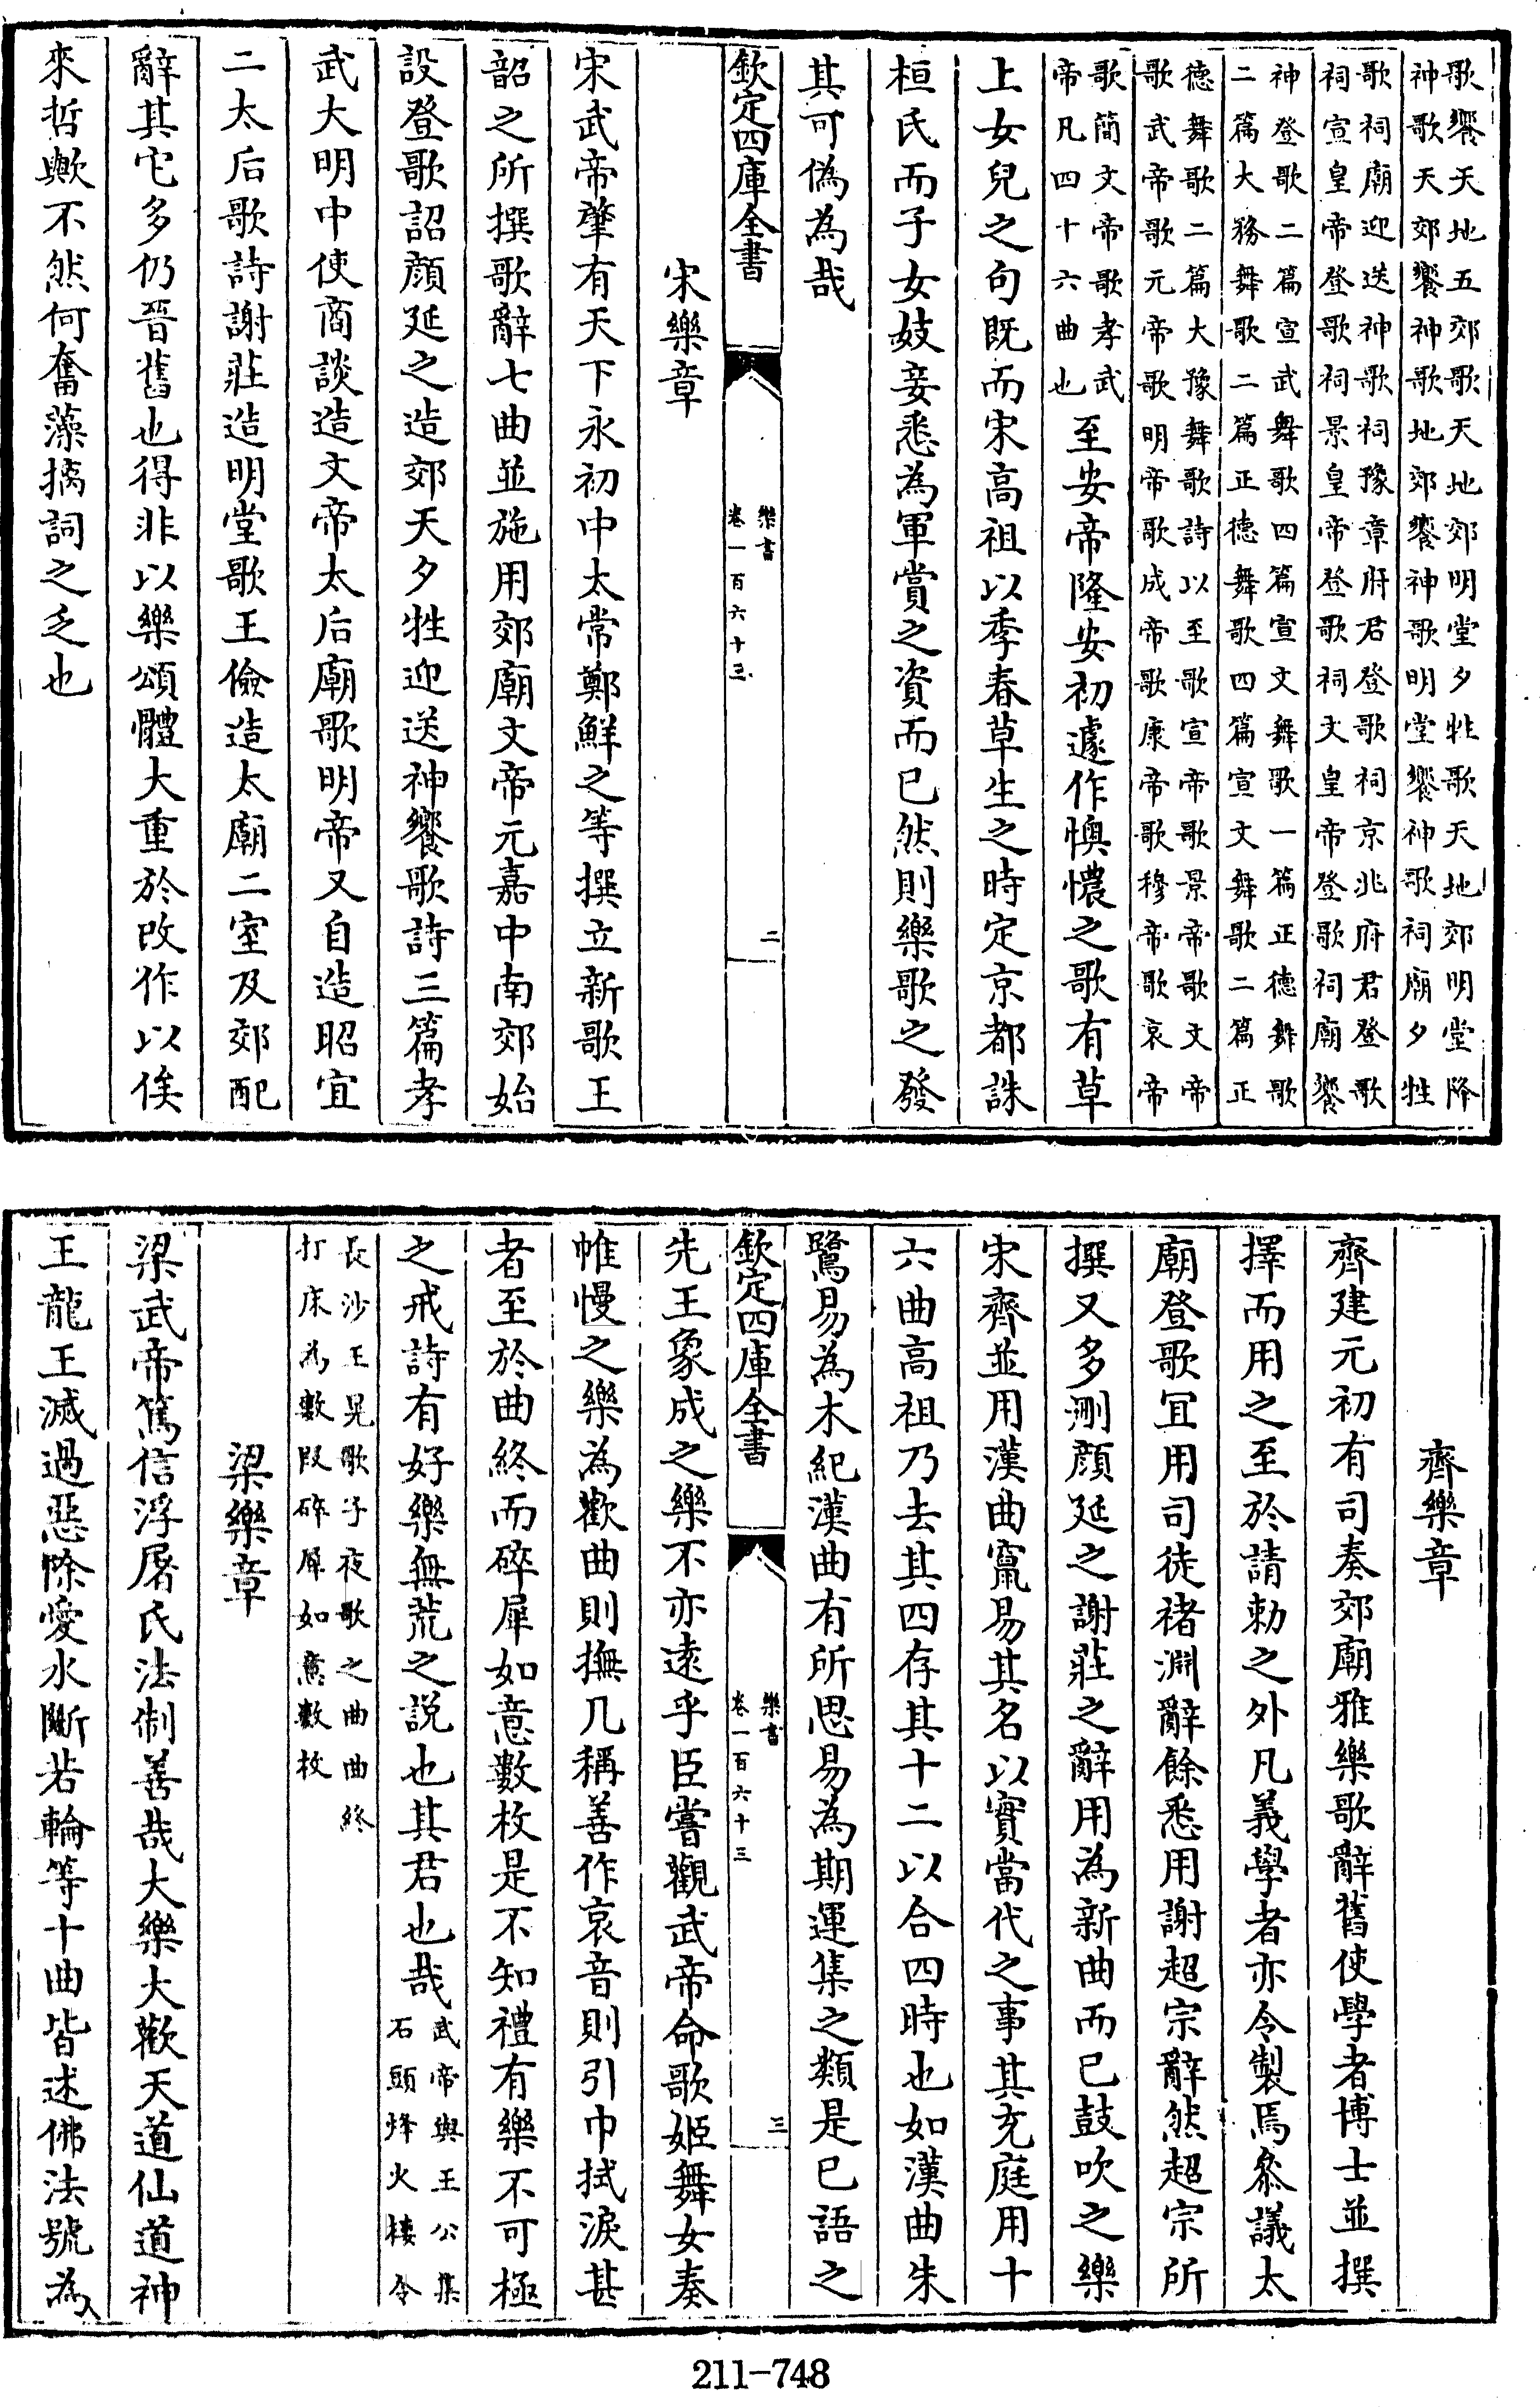 歌饗天地五郊歌天地郊明堂夕牲歌天地郊明堂降
神歌天郊饗神歌地郊饗神歌明堂饗神歌祠廟夕牲
歌祠廟迎送神歌祠豫章府君登歌祠京兆府君登歌
祠宣皇帝登歌祠景皇帝登歌祠文皇帝登歌祠廟饗
神登歌二篇宣武舞歌四篇宣文舞歌一篇正德舞歌
二篇大務舞歌二篇正德舞歌四篇宣文舞歌二篇正
德舞歌二篇大豫舞歌詩以至歌宣帝歌景帝歌文帝
歌武帝歌元帝歌明帝歌成帝歌康帝歌穆帝歌哀帝
歌簡文帝歌孝武
帝凡四十六曲也
至安帝隆安初遽作懊憹之歌有草
上女兒之句既而宋高祖以季春草生之時定京都誅
桓氏而子女妓妾悉為軍賞之資而已然則樂歌之發
其可偽為哉
欽定四庫全書
樂書
卷一百六十三
二
宋樂章
宋武帝肇有天下永初中太常鄭鮮之等撰立新歌王
韶之所撰歌辭七曲並施用郊廟文帝元嘉中南郊始
設登歌詔顔延之造郊天夕牲迎送神饗歌詩三篇孝
武大明中使商談造文帝太后廟歌明帝又自造昭宣
二太后歌詩謝莊造明堂歌王儉造太廟二室及郊配
辭其它多仍晉舊也得非以樂頌體大重於改作以俟
來哲歟不然何奮藻摛詞之乏也
齊樂章
齊建元初有司奏郊廟雅樂歌辭舊使學者博士並撰
擇而用之至於請勅之外凡義學者亦令製焉叅議太
廟登歌冝用司徒禇淵辭餘悉用謝超宗辭然超宗所
撰又多刪顔延之謝莊之辭用為新曲而已鼓吹之樂
宋齊並用漢曲竄易其名以實當代之事其充庭用十
六曲高祖乃去其四存其十二以合四時也如漢曲朱
鷺易為木紀漢曲有所思易為期運集之類是已語之
欽定四庫全書
樂書
卷一百六十三
三
先王象成之樂不亦遠乎臣嘗觀武帝命歌姬舞女奏
帷幔之樂為歡曲則撫几稱善作哀音則引巾拭淚甚
者至於曲終而碎犀如意數枚是不知禮有樂不可極
之戒詩有好樂無荒之說也其君也哉
武帝與王公集
石頭烽火樓令
長沙王晃歌子夜歌之曲曲終
打床為數段碎犀如意數枚
梁樂章
梁武帝篤信浮屠氏法制善哉大樂大歡天道仙道神
王龍王滅過惡除愛水斷若輪等十曲皆述佛法號為
211-748